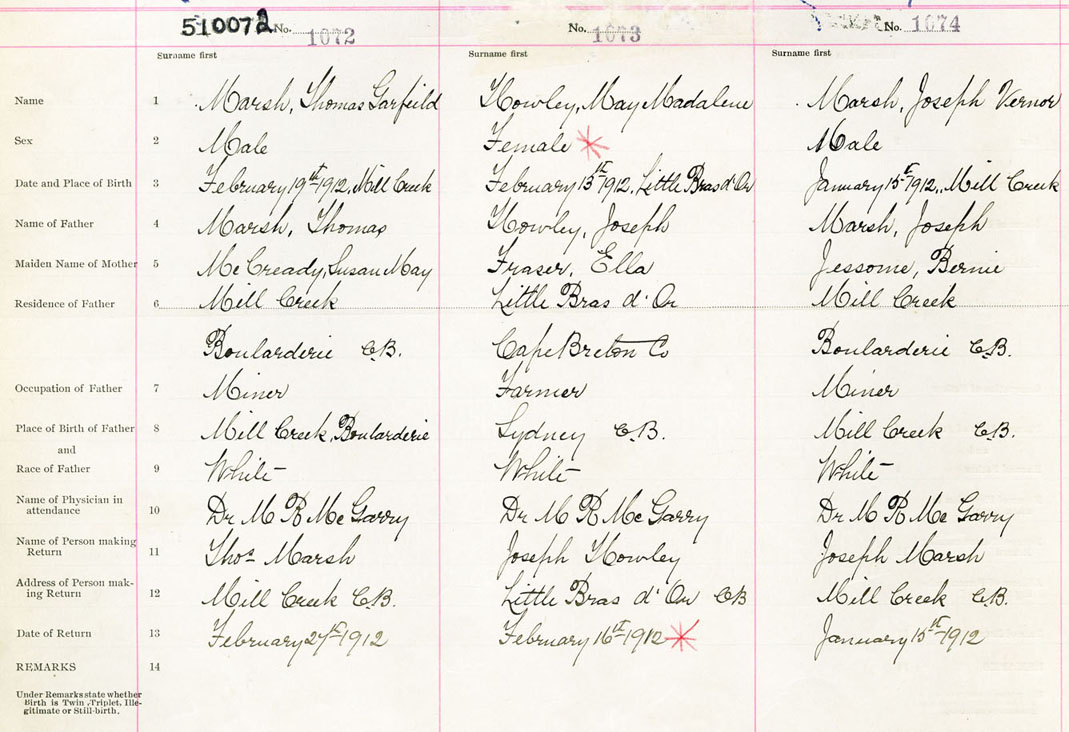 510072 No. 1072 No. 1073 No. 1074
Surname first Surname first Surname first
Name 1 Marsh, Thomas Garfeild Howley, May Madalene Marsh, Joseph Vernor
Sex 2 Male Female Male
Date and Place of Birth 3 February 19th 1912, Mill Creek February 15th 1912, Little Bras d'Or January 15th 1912, Mill Creek
Name of Father 4 Marsh, Thomas Howley, Joseph Marsh, Joseph
Maiden Name of Mother 5 McCready, Susan May Fraser, Ella Jessome, Bernie
Residence of Father 6 Mill Creek Little Bras d'Or Mill Creek
Boularderie C.B. Cape Breton Co Boularderie C.B.
Occupation of Father 7 Miner Farmer Miner
Place of Birth of Father 8 Mill Creek, Boularderie Sydney C.B. Mill Creek C.B.
and
Race of Father 9 White White White
Name of Physician in
attendance 10 Dr M R McGarry Dr M R McGarry Dr M R McGarry
Name of Person making
Return 11 Thos Marsh Joseph Howley Joseph Marsh
Address of Person mak-
ing Return 12 Mill Creek C.B. Little Bras d'Or CB Mill Creek C.B.
Date of Return 13 February 27th 1912 February 16th 1912 January 15th 1912
REMARKS 14
Under Remarks state whether
Birth is Twin, Triplet, Ille-
gitimate or Still-birth.